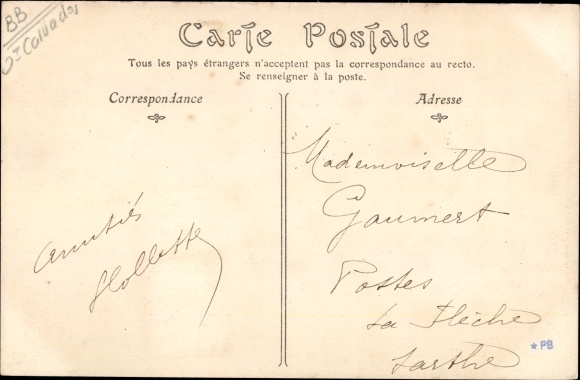 BB
Carte Postale
Tous les pays étrangers n'acceptent pas la correspondance au recto.
Se renseigner à la poste.
Correspondance
Adresse
Mademoiselle
Gaumert
Postes
La Flèche
Sarthe
Amitiés
PB